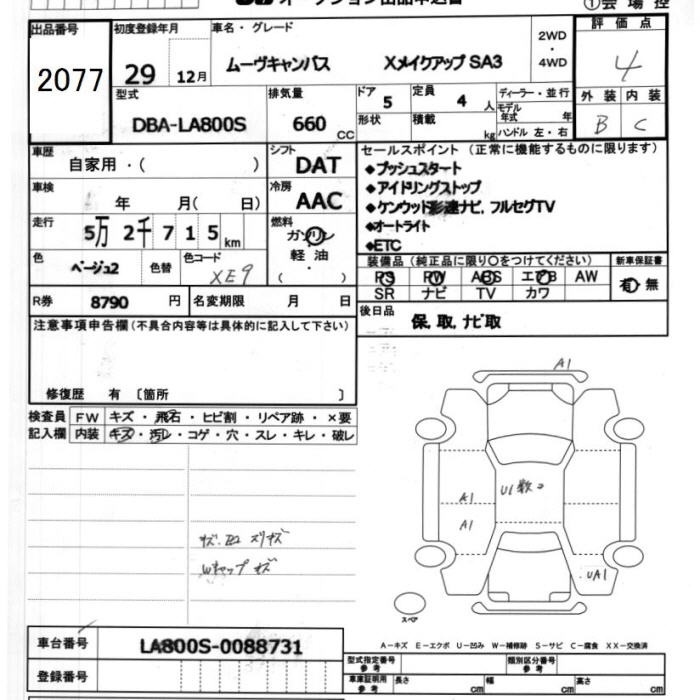 オークション出品申込書 ①会場控
出品番号 初度登録年月 車名・グレード 2WD・4WD 評価点
2077 29 12月 ムーヴキャンバス Xメイクアップ SA3 4
型式 排気量 ドア 5 定員 4 人 ディーラー・並行 外装 内装
モデル年式 年
DBA-LA800S 660 CC 形状 積載 kg ハンドル 左・右 B C
車歴 自家用・( ) シフト DAT セールスポイント (正常に機能するものに限ります)
◆プッシュスタート
車検 年 月( 日) 冷房 AAC ◆アイドリングストップ
◆ケンウッド彩速ナビ,フルセグTV
走行 5万 2千 7 1 5 km 燃料 ガソリン ◆オートライト
軽油 ◆ETC
色 ベージュ2 色替 色コード XE9 ( ) 装備品 (純正品に限り○をつけてください) 新車保証書
PS PW ABS エアB AW 有・無
R券 8790 円 名変期限 月 日 SR ナビ TV カワ
注意事項申告欄 (不具合内容等は具体的に記入して下さい) 後日品 保,取,ナビ取
A1
修復歴 有 〔箇所 〕
検査員 FW キズ・飛石・ヒビ割・リペア跡・×要
記入欄 内装 キズ・汚レ・コゲ・穴・スレ・キレ・破レ
A1 U1数コ
A1
Wキャップ キズ
UA1
スペア
A-キズ E-エクボ U-凹み W-補修跡 S-サビ C-腐食 XX-交換済
車台番号 LA800S-0088731
型式指定番号 参考 類別区分番号 参考
登録番号 車庫証明用 参考 長さ cm 幅 cm 高さ cm